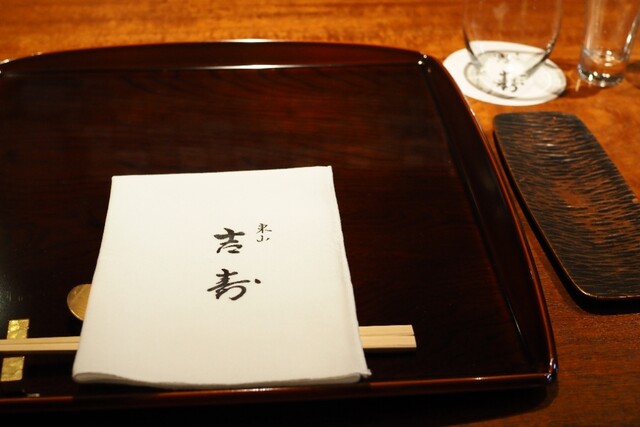 東山
吉寿
寿